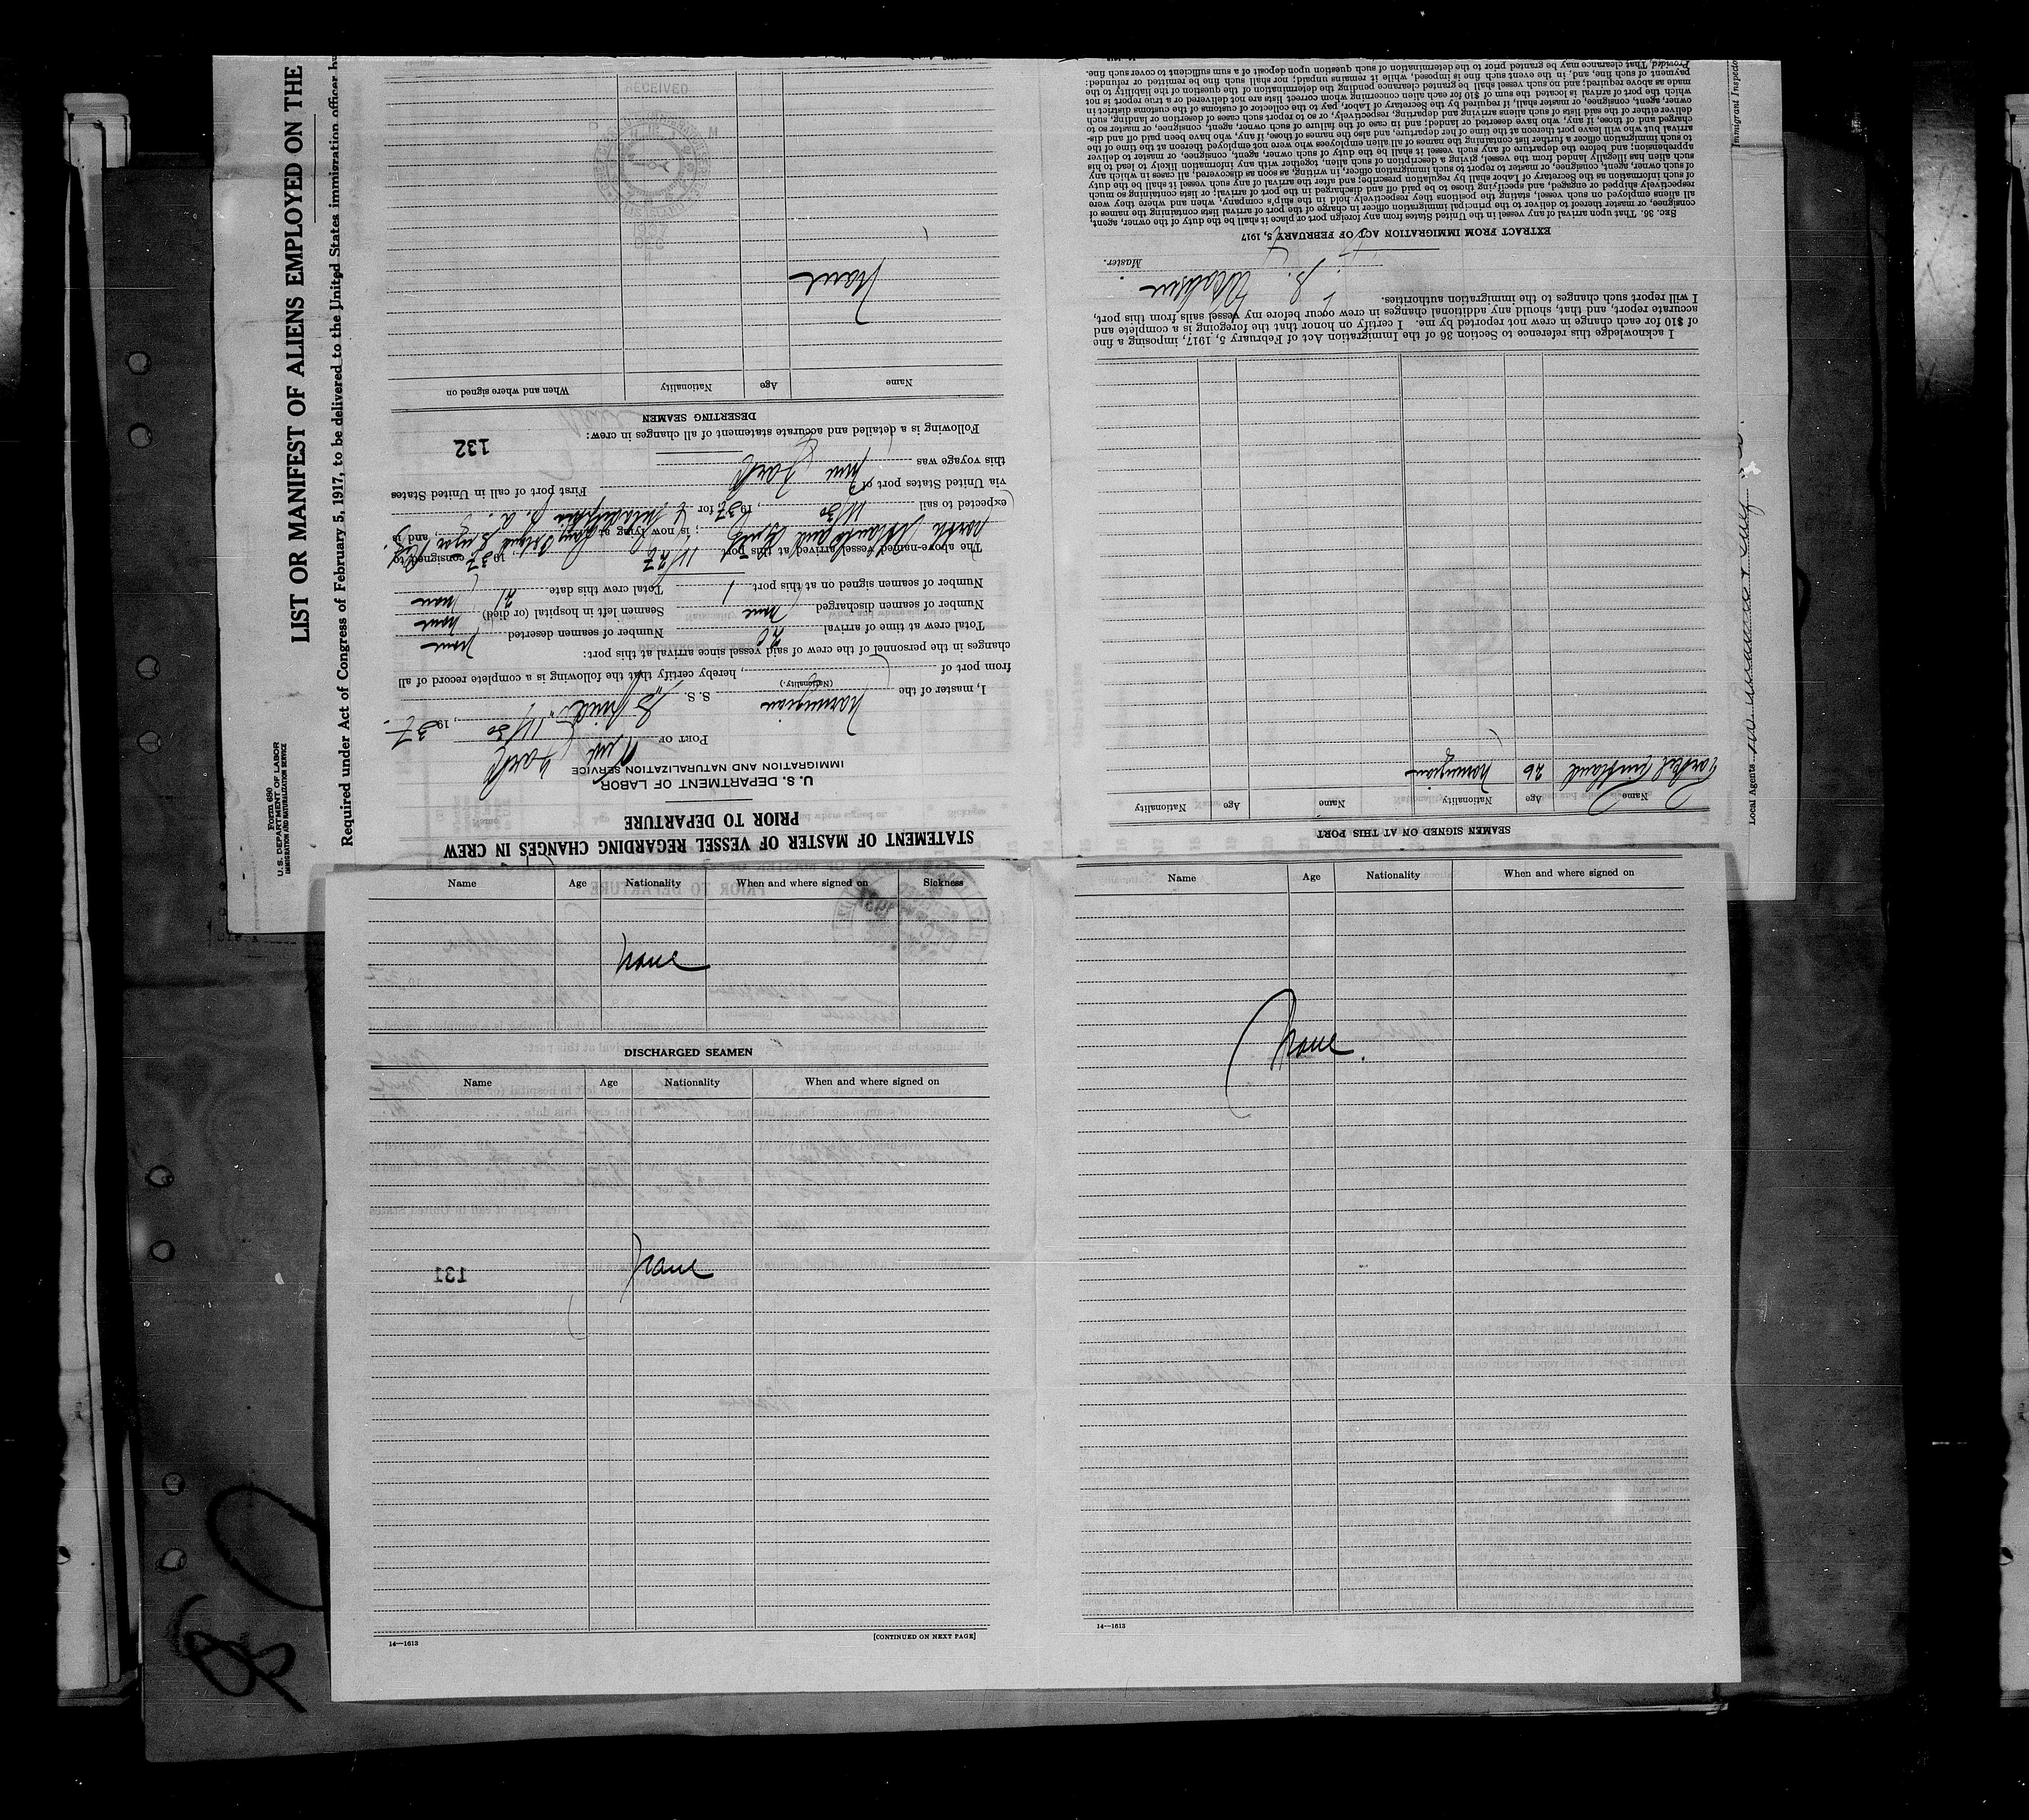 LIST OR MANIFEST OF ALIENS EMPLOYED ON THE
Required under Act of Congress of February 5, 1917, to be delivered to the United States immigration officer
Form 680
U. S. DEPARTMENT OF LABOR
IMMIGRATION AND NATURALIZATION SERVICE
STATEMENT OF MASTER OF VESSEL REGARDING CHANGES IN CREW
PRIOR TO DEPARTURE
U. S. DEPARTMENT OF LABOR
IMMIGRATION AND NATURALIZATION SERVICE
PORT OF New York 11/30, 1937.
I, master of the Norwegian S. S.
(Nationality.)
from port of , hereby certify that the following is a complete record of all
changes in the personnel of the crew of said vessel since arrival at this port:
Total crew at time of arrival 20 Number of seamen deserted none
Number of seamen discharged none Seamen left in hospital (or died) none
Number of seamen signed on at this port 1 Total crew this date 21
The above-named vessel arrived at this port 11/27 1937 consigned to
North Atlantic and Gulf ; is now lying at Long Island Sugar Ref., and is
expected to sail 11/30, 1937 for Philadelphia P. A.
via United States port of First port of call in United States
this voyage was New York
Following is a detailed and accurate statement of all changes in crew:
132
DESERTING SEAMEN
Name Age Nationality When and where signed on
None
RECEIVED
SEAMEN SIGNED ON AT THIS PORT
Name Age Nationality Name Age Nationality
26 Norwegian
I acknowledge this reference to Section 36 of the Immigration Act of February 5, 1917, imposing a fine
of $10 for each change in crew not reported by me. I certify on honor that the foregoing is a complete and
accurate report, and that, should any additional changes in crew occur before my vessel sails from this port,
I will report such changes to the immigration authorities.
Master.
EXTRACT FROM IMMIGRATION ACT OF FEBRUARY 5, 1917
SEC. 36. That upon arrival of any vessel in the United States from any foreign port or place it shall be the duty of the owner, agent,
consignee, or master thereof to deliver to the principal immigration officer in charge of the port of arrival lists containing the names of
all aliens employed on such vessel, stating the positions they respectively hold in the ship's company, when and where they were
respectively shipped or engaged, and specifying those to be paid off and discharged in the port of arrival; or lists containing so much
of such information as the Secretary of Labor shall by regulation prescribe; and after the arrival of any such vessel it shall be the duty
of such owner, agent, consignee, or master to report to such immigration officer, in writing, as soon as discovered, all cases in which any
such alien has illegally landed from the vessel, giving a description of such alien, together with any information likely to lead to his
apprehension; and before the departure of any such vessel it shall be the duty of such owner, agent, consignee, or master to deliver
to such immigration officer a further list containing the names of all alien employees who were not employed thereon at the time of the
arrival but who will leave port thereon at the time of her departure, and also the names of those, if any, who have been paid off and dis-
charged and of those, if any, who have deserted or landed; and in case of the failure of such owner, agent, consignee, or master so to
deliver either of the said lists of such aliens arriving and departing, respectively, or so to report such cases of desertion or landing, such
owner, agent, consignee, or master shall, if required by the Secretary of Labor, pay to the collector of customs of the customs district in
which the port of arrival is located the sum of $10 for each alien concerning whom correct lists are not delivered or a true report is not
made as above required; and no such vessel shall be granted clearance pending the determination of the question of the liability to the
payment of such fine, and, in the event such fine is imposed, while it remains unpaid; nor shall such fine be remitted or refunded:
Provided, That clearance may be granted prior to the determination of such question upon deposit of a sum sufficient to cover such fine.
Immigrant Inspector
Local Agents
Name Age Nationality When and where signed on Sickness
None
DISCHARGED SEAMEN
Name Age Nationality When and where signed on
None
131
14—1613
[CONTINUED ON NEXT PAGE]
Name Age Nationality When and where signed on
None.
14—1613